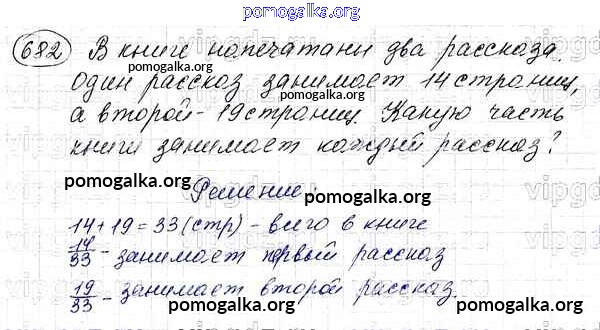 pomogalka.org
682 В книге напечатаны два рассказа.
Один рассказ занимает 14 страниц,
а второй - 19 страниц. Какую часть
книги занимает каждый рассказ?
pomogalka.org
Решение:
14 + 19 = 33 (стр) - всего в книге
14/33 - занимает первый рассказ
19/33 - занимает второй рассказ.
pomogalka.org
pomogalka.org